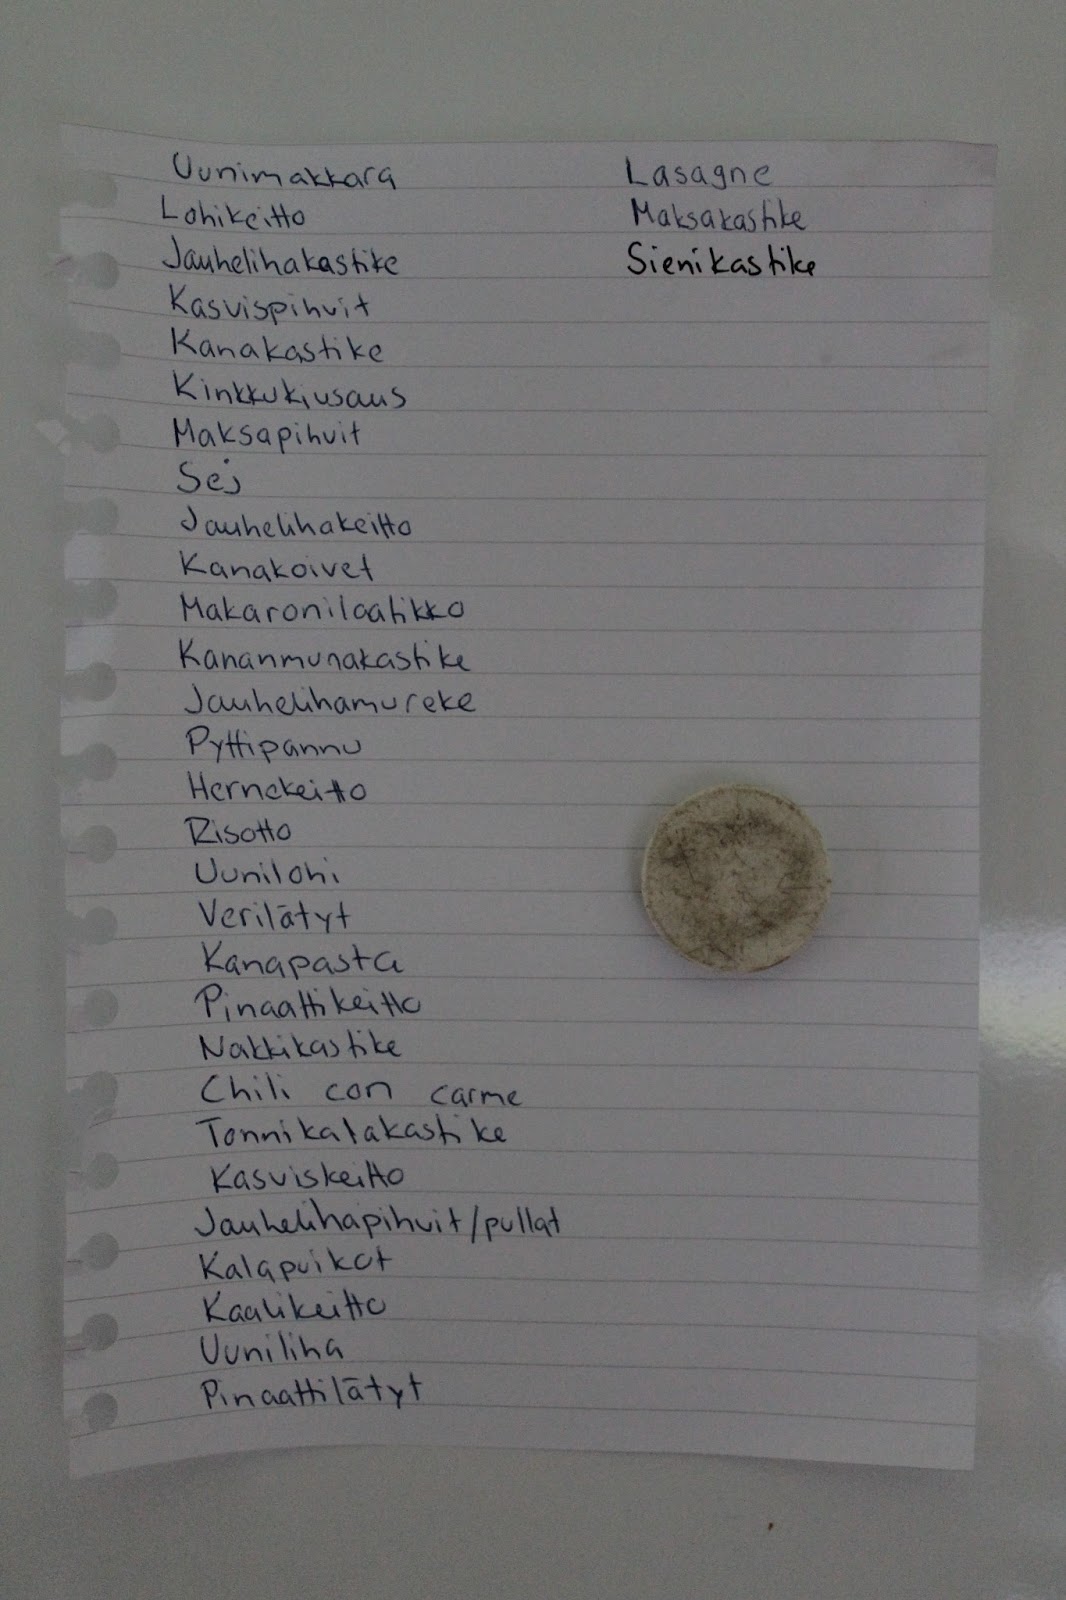 Uunimakkara
Lohikeitto
Jauhelihakastike
Kasvispihvit
Kanakastike
Kinkkukiusaus
Maksapihvit
Sej
Jauhelihakeitto
Kanakoivet
Makaronilaatikko
Kananmunakastike
Jauhelihamureke
Pyttipannu
Hernekeitto
Risotto
Uunilohi
Verilätyt
Kanapasta
Pinaattikeitto
Nakkikastike
Chili con carme
Tonnikalakastike
Kasviskeitto
Jauhelihapihvit/pullat
Kalapuikot
Kaalikeitto
Uuniliha
Pinaattilätyt
Lasagne
Maksakastike
Sienikastike